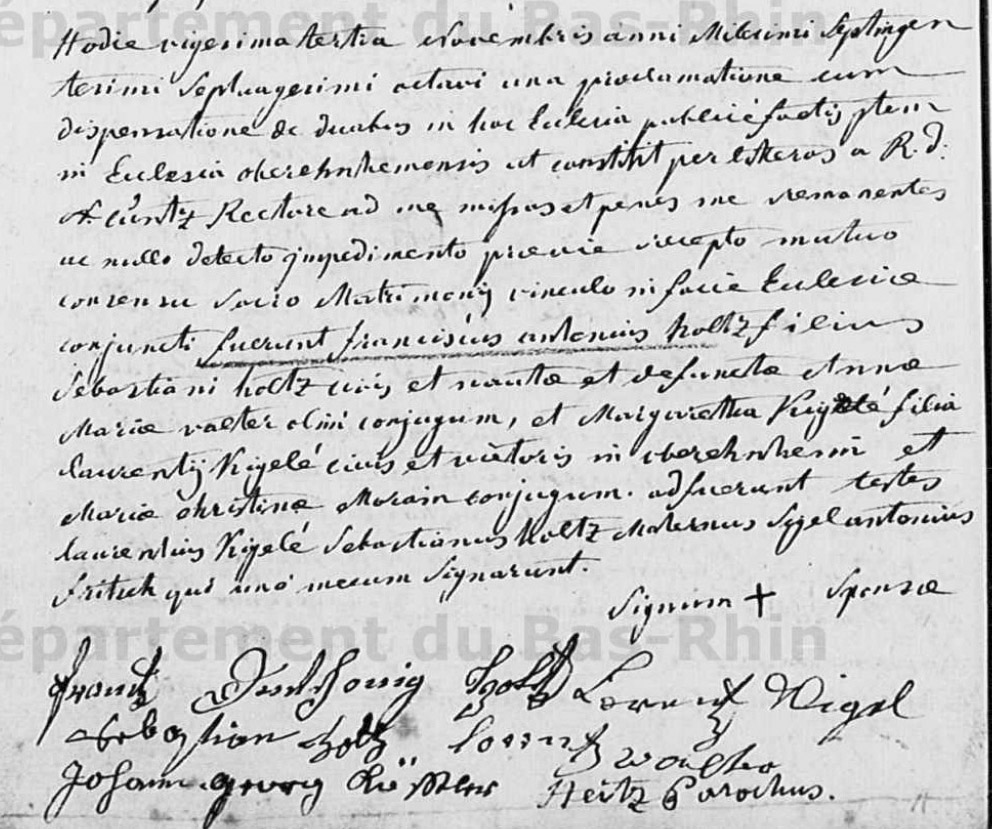 Département du Bas-Rhin
Hodie vigesima tertia Novembris anni Milesimi Septingen
tesimi Septuagesimi octavi una proclamatione cum
dispensatione de duabus in hac Eclesia publice factis
in Eclesia oberehnhemensis ut constitit per literas a R. d:
Rectore ad me missas et penes me remanentes
ac nullo detecto impedimento previe recepto mutuo
consensu Sacro Matrimonij vinculo in facie Eclesiæ
conjuncti fuerunt franciscus antonius holtz filius
Sebastiani holtz civis et nautæ et defunctæ Annæ
Mariæ valter olim conjugum, et Margaretha Kigelé filia
laurentij Kigelé civis et vietoris in oberehnheim et
Mariæ christinæ Morain conjugum. adfuerunt testes
laurentius Kigelé Sebastianus holtz Maternus Sigel antonius
fritsch qui una mecum Signarunt.
Signum + Sponsæ
Département du Bas-Rhin
Frantz Anthonig Holtz Lorentz Kigel
Sebastian holtz Lorentz Walter
Johann georg Heitz Parochus.